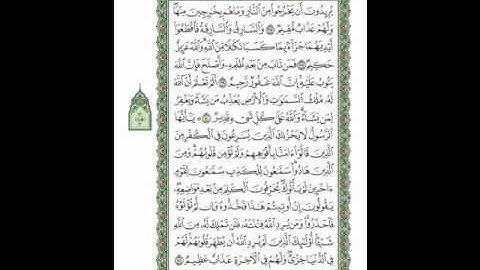 يُرِيدُونَ أَن يَخْرُجُوا۟ مِنَ ٱلنَّارِ وَمَا هُم بِخَٰرِجِينَ مِنْهَا
وَلَهُمْ عَذَابٌ مُّقِيمٌ ٣٧ وَٱلسَّارِقُ وَٱلسَّارِقَةُ فَٱقْطَعُوٓا۟
أَيْدِيَهُمَا جَزَآءًۢ بِمَا كَسَبَا نَكَٰلًا مِّنَ ٱللَّهِ وَٱللَّهُ عَزِيزٌ
حَكِيمٌ ٣٨ فَمَن تَابَ مِنۢ بَعْدِ ظُلْمِهِۦ وَأَصْلَحَ فَإِنَّ ٱللَّهَ
يَتُوبُ عَلَيْهِ إِنَّ ٱللَّهَ غَفُورٌ رَّحِيمٌ ٣٩ أَلَمْ تَعْلَمْ أَنَّ ٱللَّهَ
لَهُۥ مُلْكُ ٱلسَّمَٰوَٰتِ وَٱلْأَرْضِ يُعَذِّبُ مَن يَشَآءُ وَيَغْفِرُ
لِمَن يَشَآءُ وَٱللَّهُ عَلَىٰ كُلِّ شَىْءٍ قَدِيرٌ ٤٠ يَٰٓأَيُّهَا
ٱلرَّسُولُ لَا يَحْزُنكَ ٱلَّذِينَ يُسَٰرِعُونَ فِى ٱلْكُفْرِ مِنَ
ٱلَّذِينَ قَالُوٓا۟ ءَامَنَّا بِأَفْوَٰهِهِمْ وَلَمْ تُؤْمِن قُلُوبُهُمْ وَمِنَ
ٱلَّذِينَ هَادُوا۟ سَمَّٰعُونَ لِلْكَذِبِ سَمَّٰعُونَ لِقَوْمٍ
ءَاخَرِينَ لَمْ يَأْتُوكَ يُحَرِّفُونَ ٱلْكَلِمَ مِنۢ بَعْدِ مَوَاضِعِهِۦ
يَقُولُونَ إِنْ أُوتِيتُمْ هَٰذَا فَخُذُوهُ وَإِن لَّمْ تُؤْتَوْهُ
فَٱحْذَرُوا۟ وَمَن يُرِدِ ٱللَّهُ فِتْنَتَهُۥ فَلَن تَمْلِكَ لَهُۥ مِنَ ٱللَّهِ
شَيْـًٔا أُو۟لَٰٓئِكَ ٱلَّذِينَ لَمْ يُرِدِ ٱللَّهُ أَن يُطَهِّرَ قُلُوبَهُمْ لَهُمْ
فِى ٱلدُّنْيَا خِزْىٌ وَلَهُمْ فِى ٱلْءَاخِرَةِ عَذَابٌ عَظِيمٌ ٤١